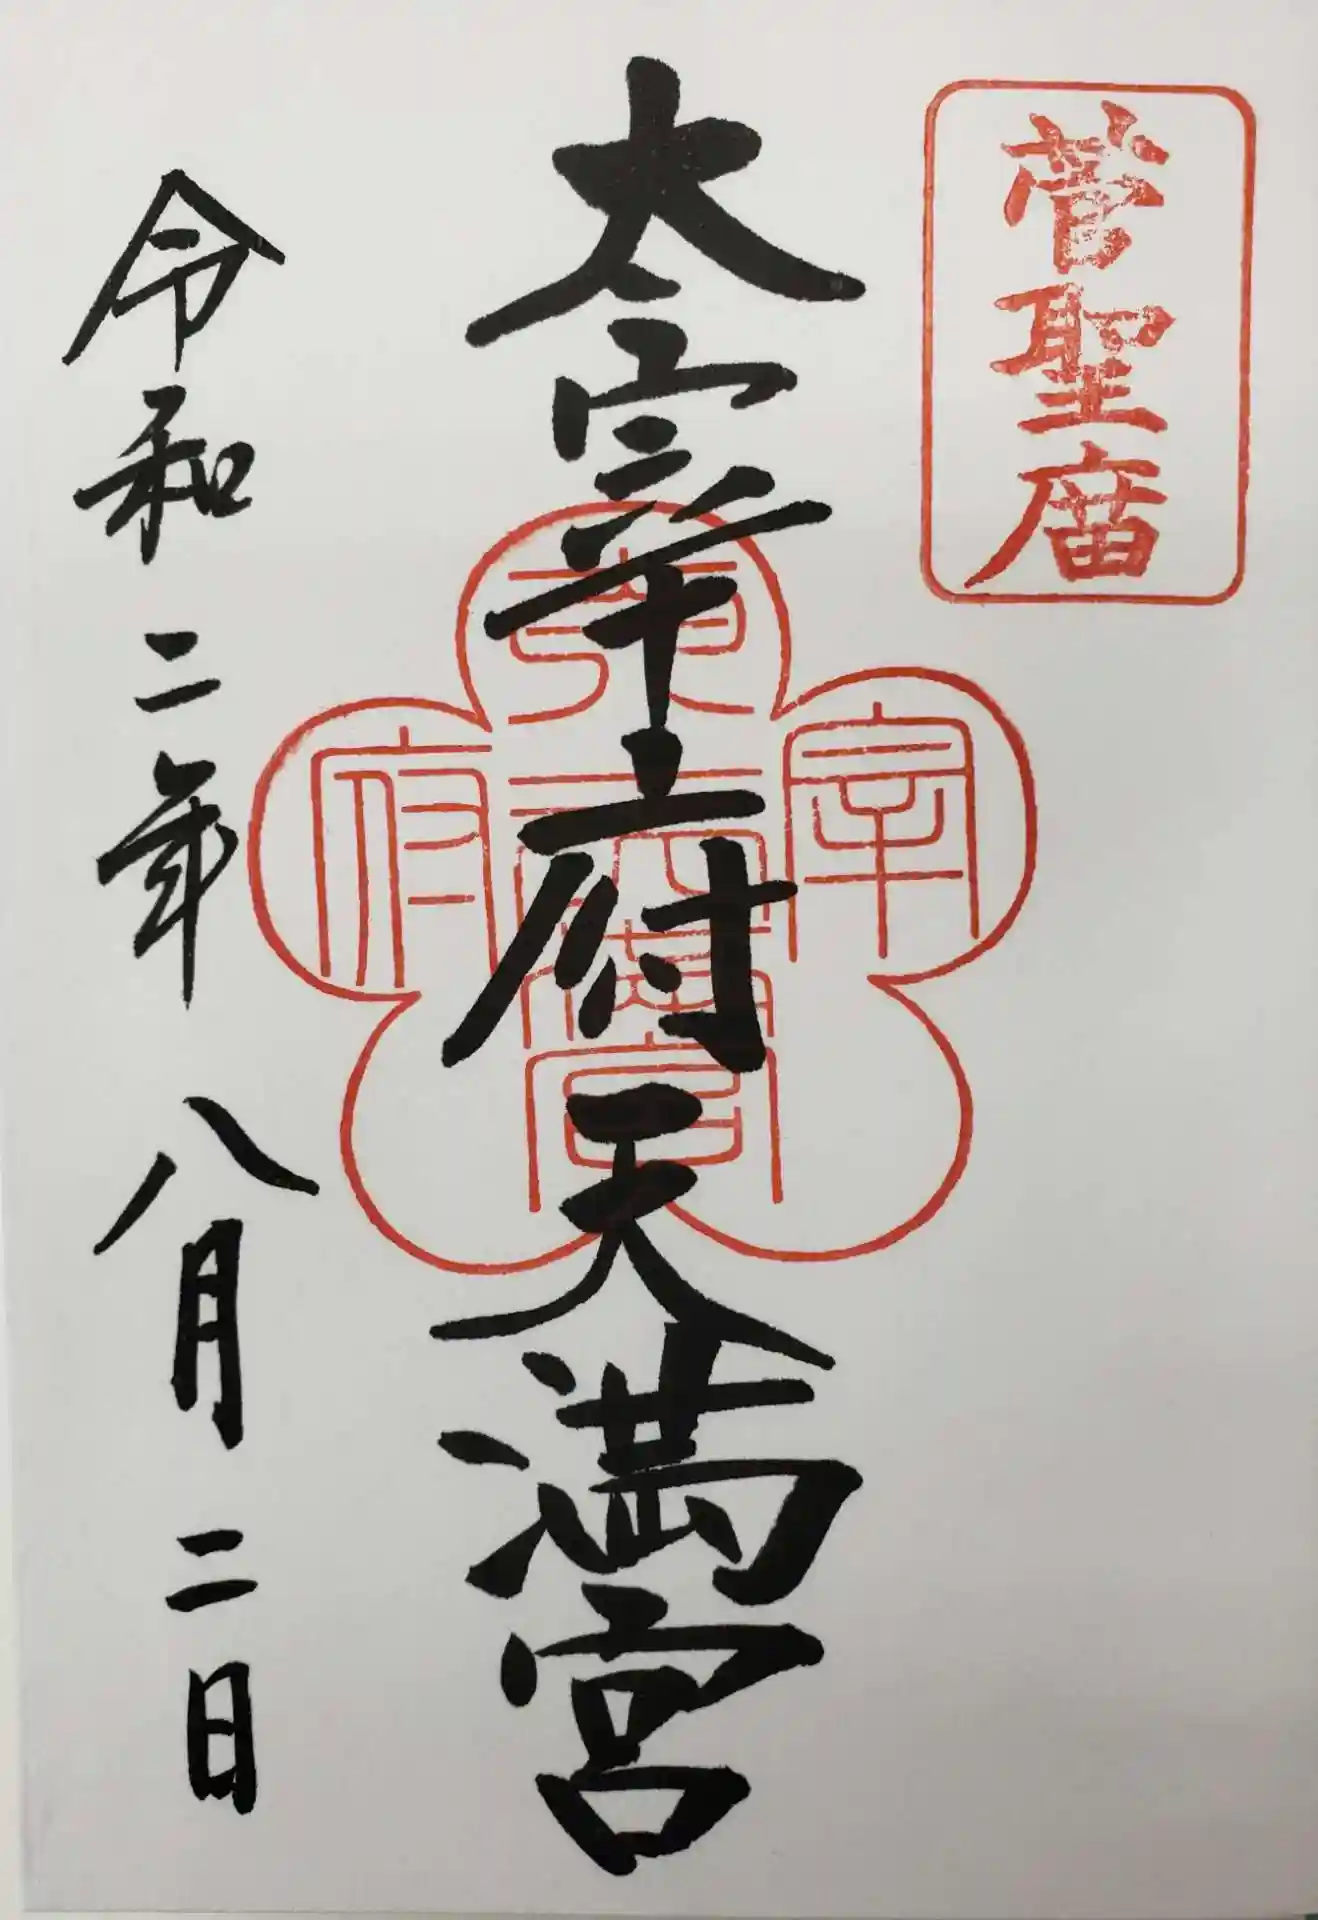 菅聖庿
太宰府天満宮
令和二年八月二日
宰
府
天
満
宮